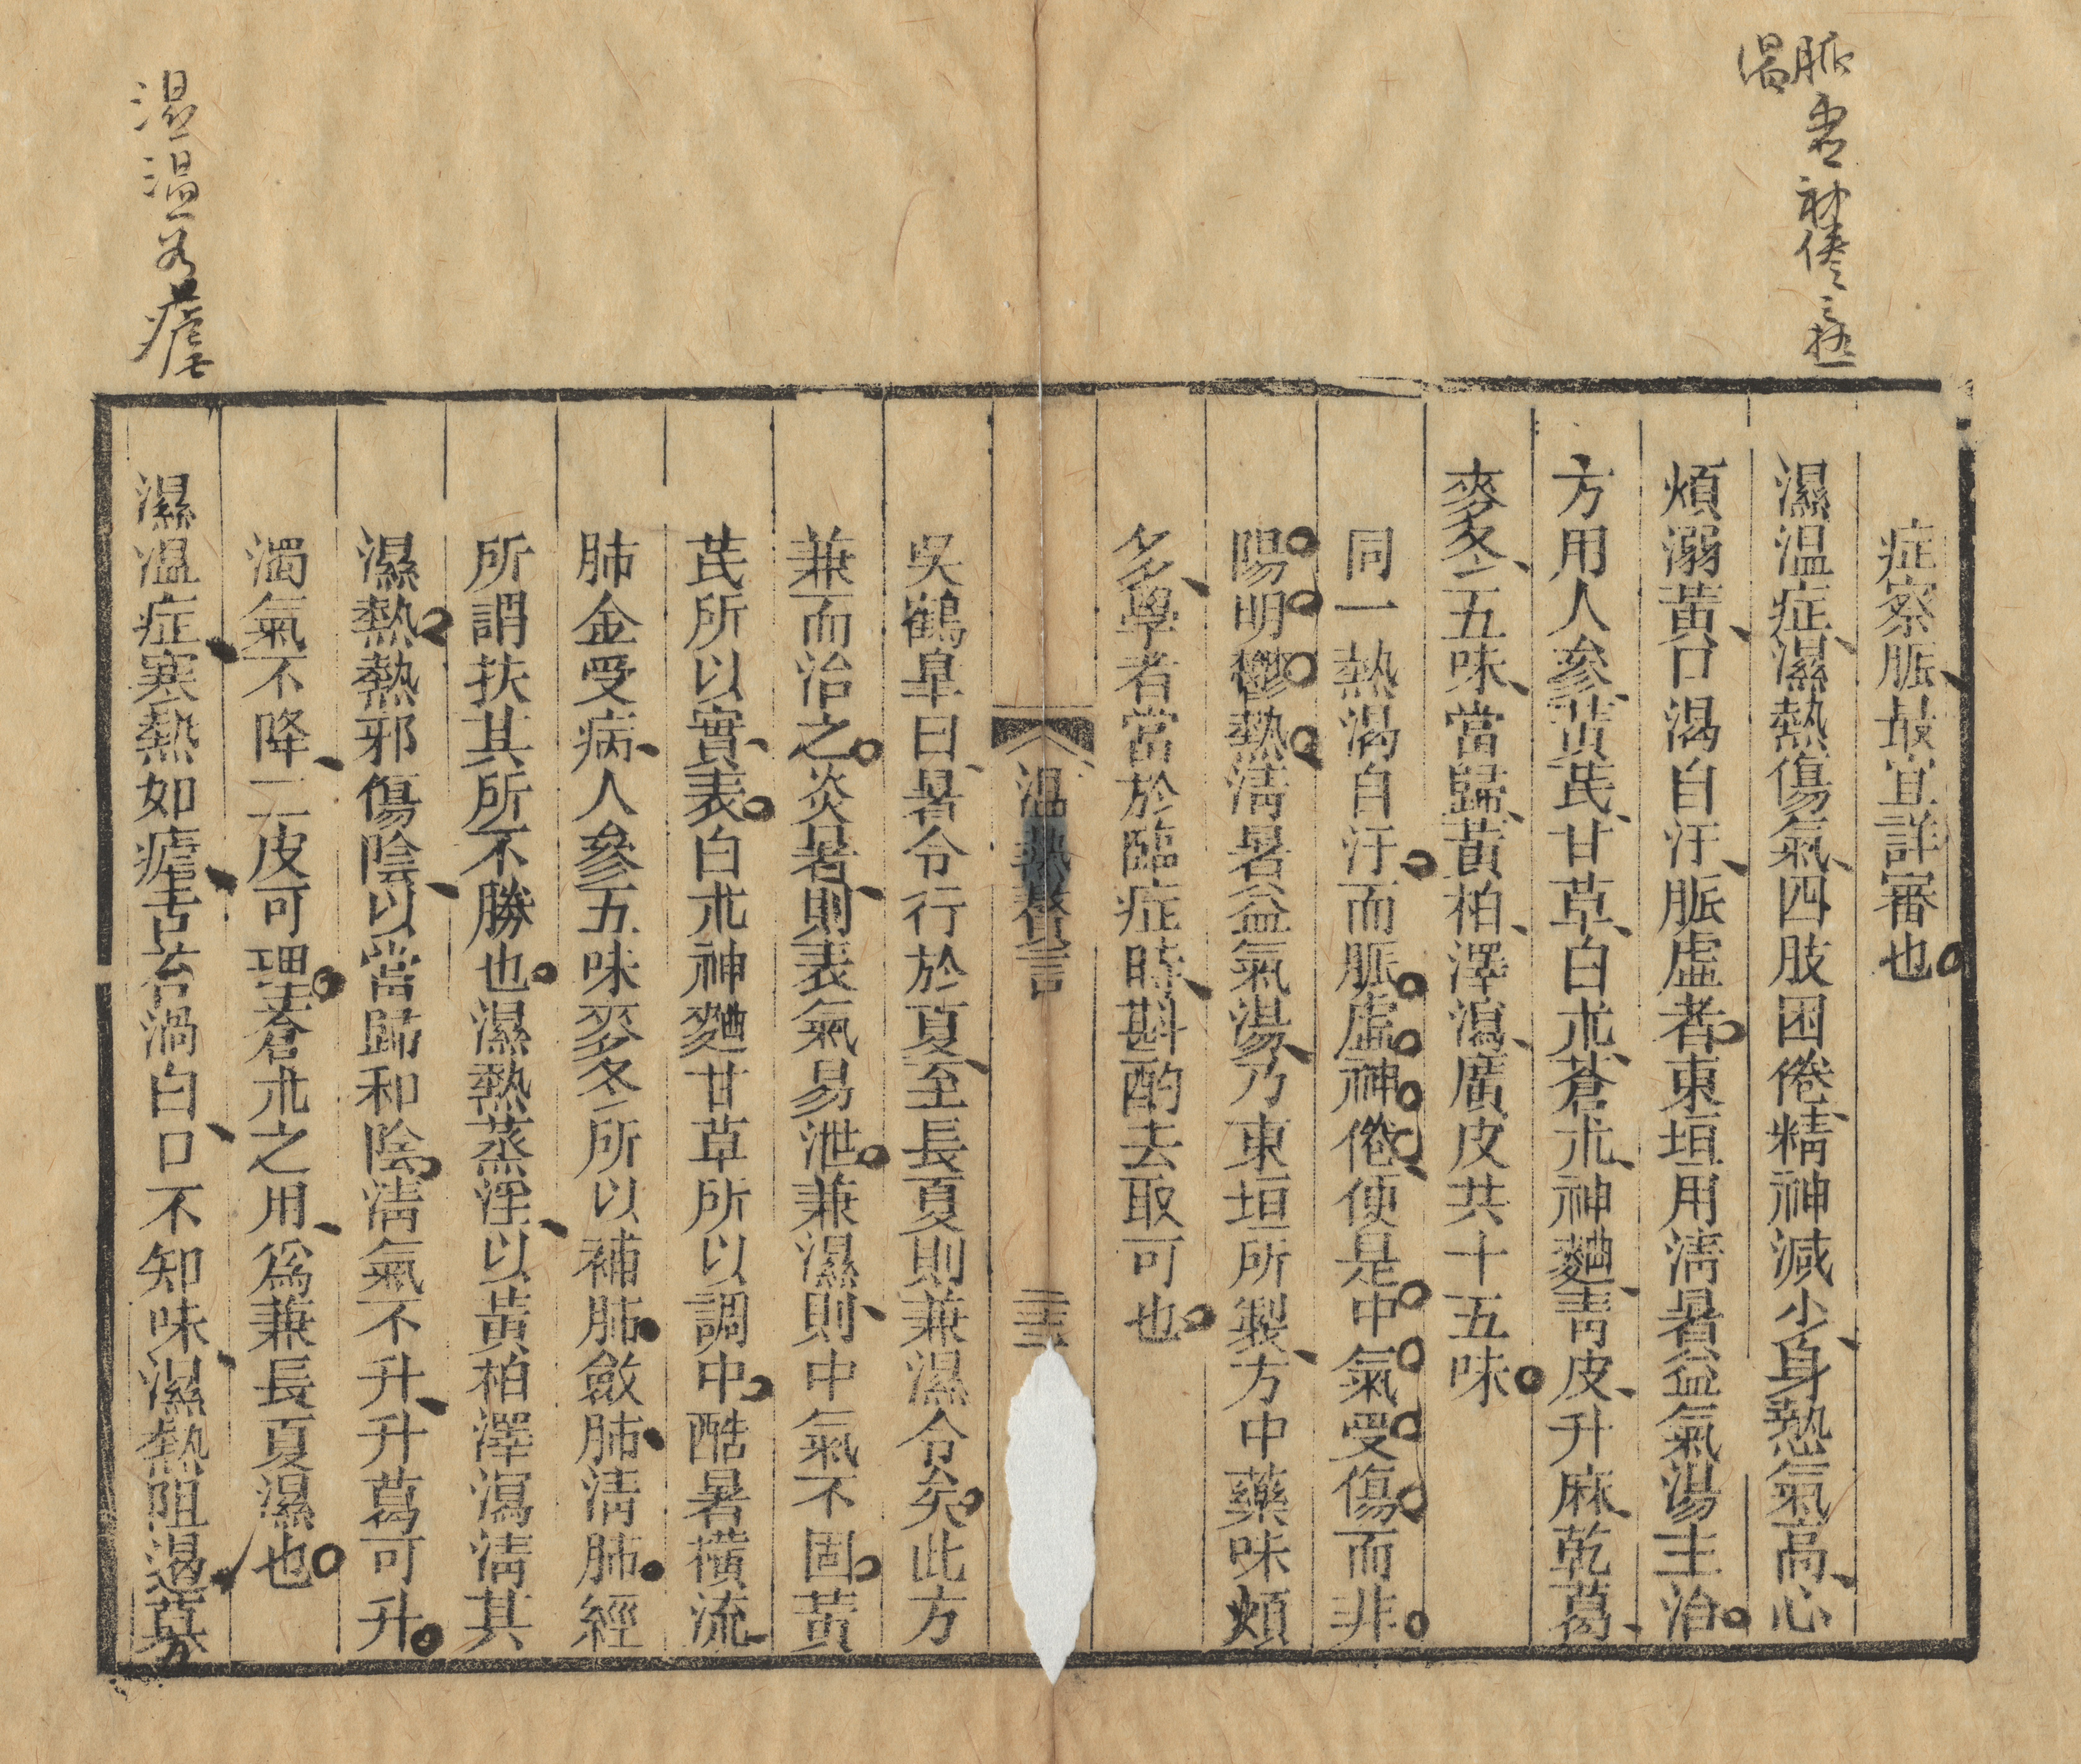 症察脈最宜詳審也
濕温症濕熱傷氣四肢困倦精神減少身熱氣高心
煩溺黃口渴自汗脈虛者東垣用清暑益氣湯主治
方用人參黃茋甘草白朮蒼朮神麯青皮升麻乾葛
麥冬五味當歸黃柏澤瀉廣皮共十五味
同一熱渴自汗而脈虛神倦便是中氣受傷而非
陽明鬱熱清暑益氣湯乃東垣所製方中藥味頗
多學者當於臨症時斟酌去取可也
温熱贅言
吳鶴臯曰暑令行於夏至長夏則兼濕令矣此方
兼而治之炎暑則表氣易泄兼濕則中氣不固黃
茋所以實表白朮神麯甘草所以調中酷暑橫流
肺金受病人參五味麥冬所以補肺斂肺清肺經
所謂扶其所不勝也濕熱蒸淫以黃柏澤瀉清其
濕熱熱邪傷陰以當歸和陰清氣不升升葛可升
濁氣不降二皮可理蒼朮之用爲兼長夏濕也
濕温症寒熱如瘧舌苔滑白口不知味濕熱阻遏募
脈虛神倦之極
濕温如瘧